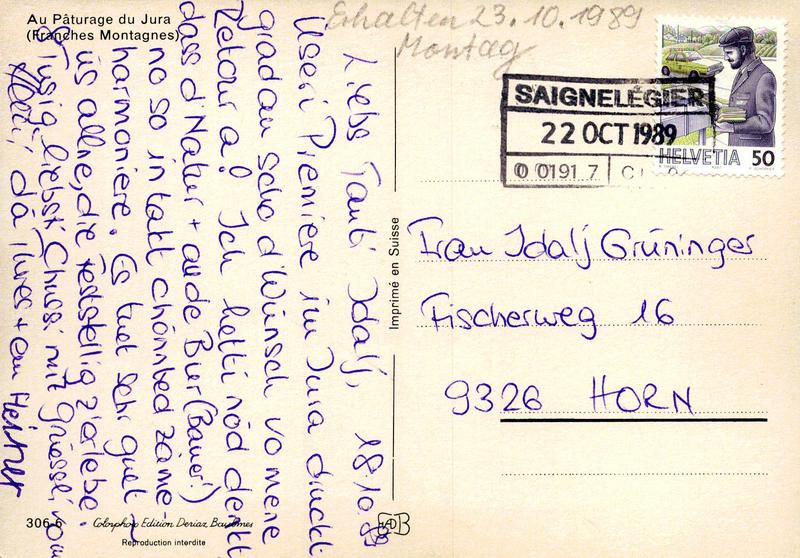 Au Pâturage du Jura
(Franches Montagnes)
Erhalten 23.10.1989
Montag
SAIGNELÉGIER
22 OCT 1989
0 0191 7
HELVETIA 50
Liebs Tanti Idalj, 18.10.89
Useri Premiere im Jura druckt
gradau scho d'Wünsch vo mene
Retour a! Ich hetti nöd denkt
dass d'Natur + au de Buur (Bauer!)
no so in takt chömbed zäme-
harmoniere. Es tuet sehr guet
üs allne, die Feststellig z'erlebe.
Tusig liebsti Chussi mit Grüessli vom
dä Ihres + em
Imprimé en Suisse
Frau Idalj Grüninger
Fischerweg 16
9326 HORN
306-6 Colorphoto Edition Deriaz Baulmes
Reproduction interdite